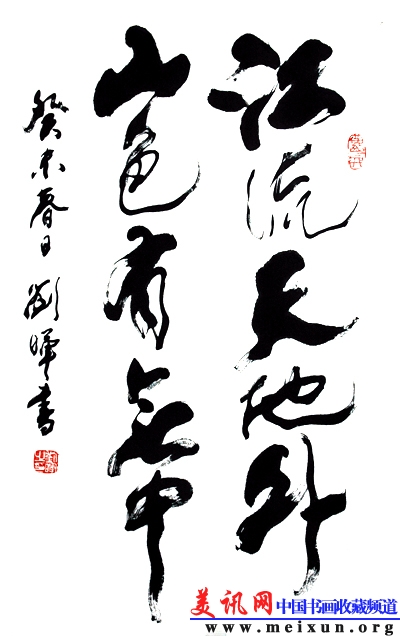 江流天地外
山色有無中
癸未春日 劉暉書
美讯网中国书画收藏频道
www.meixun.org